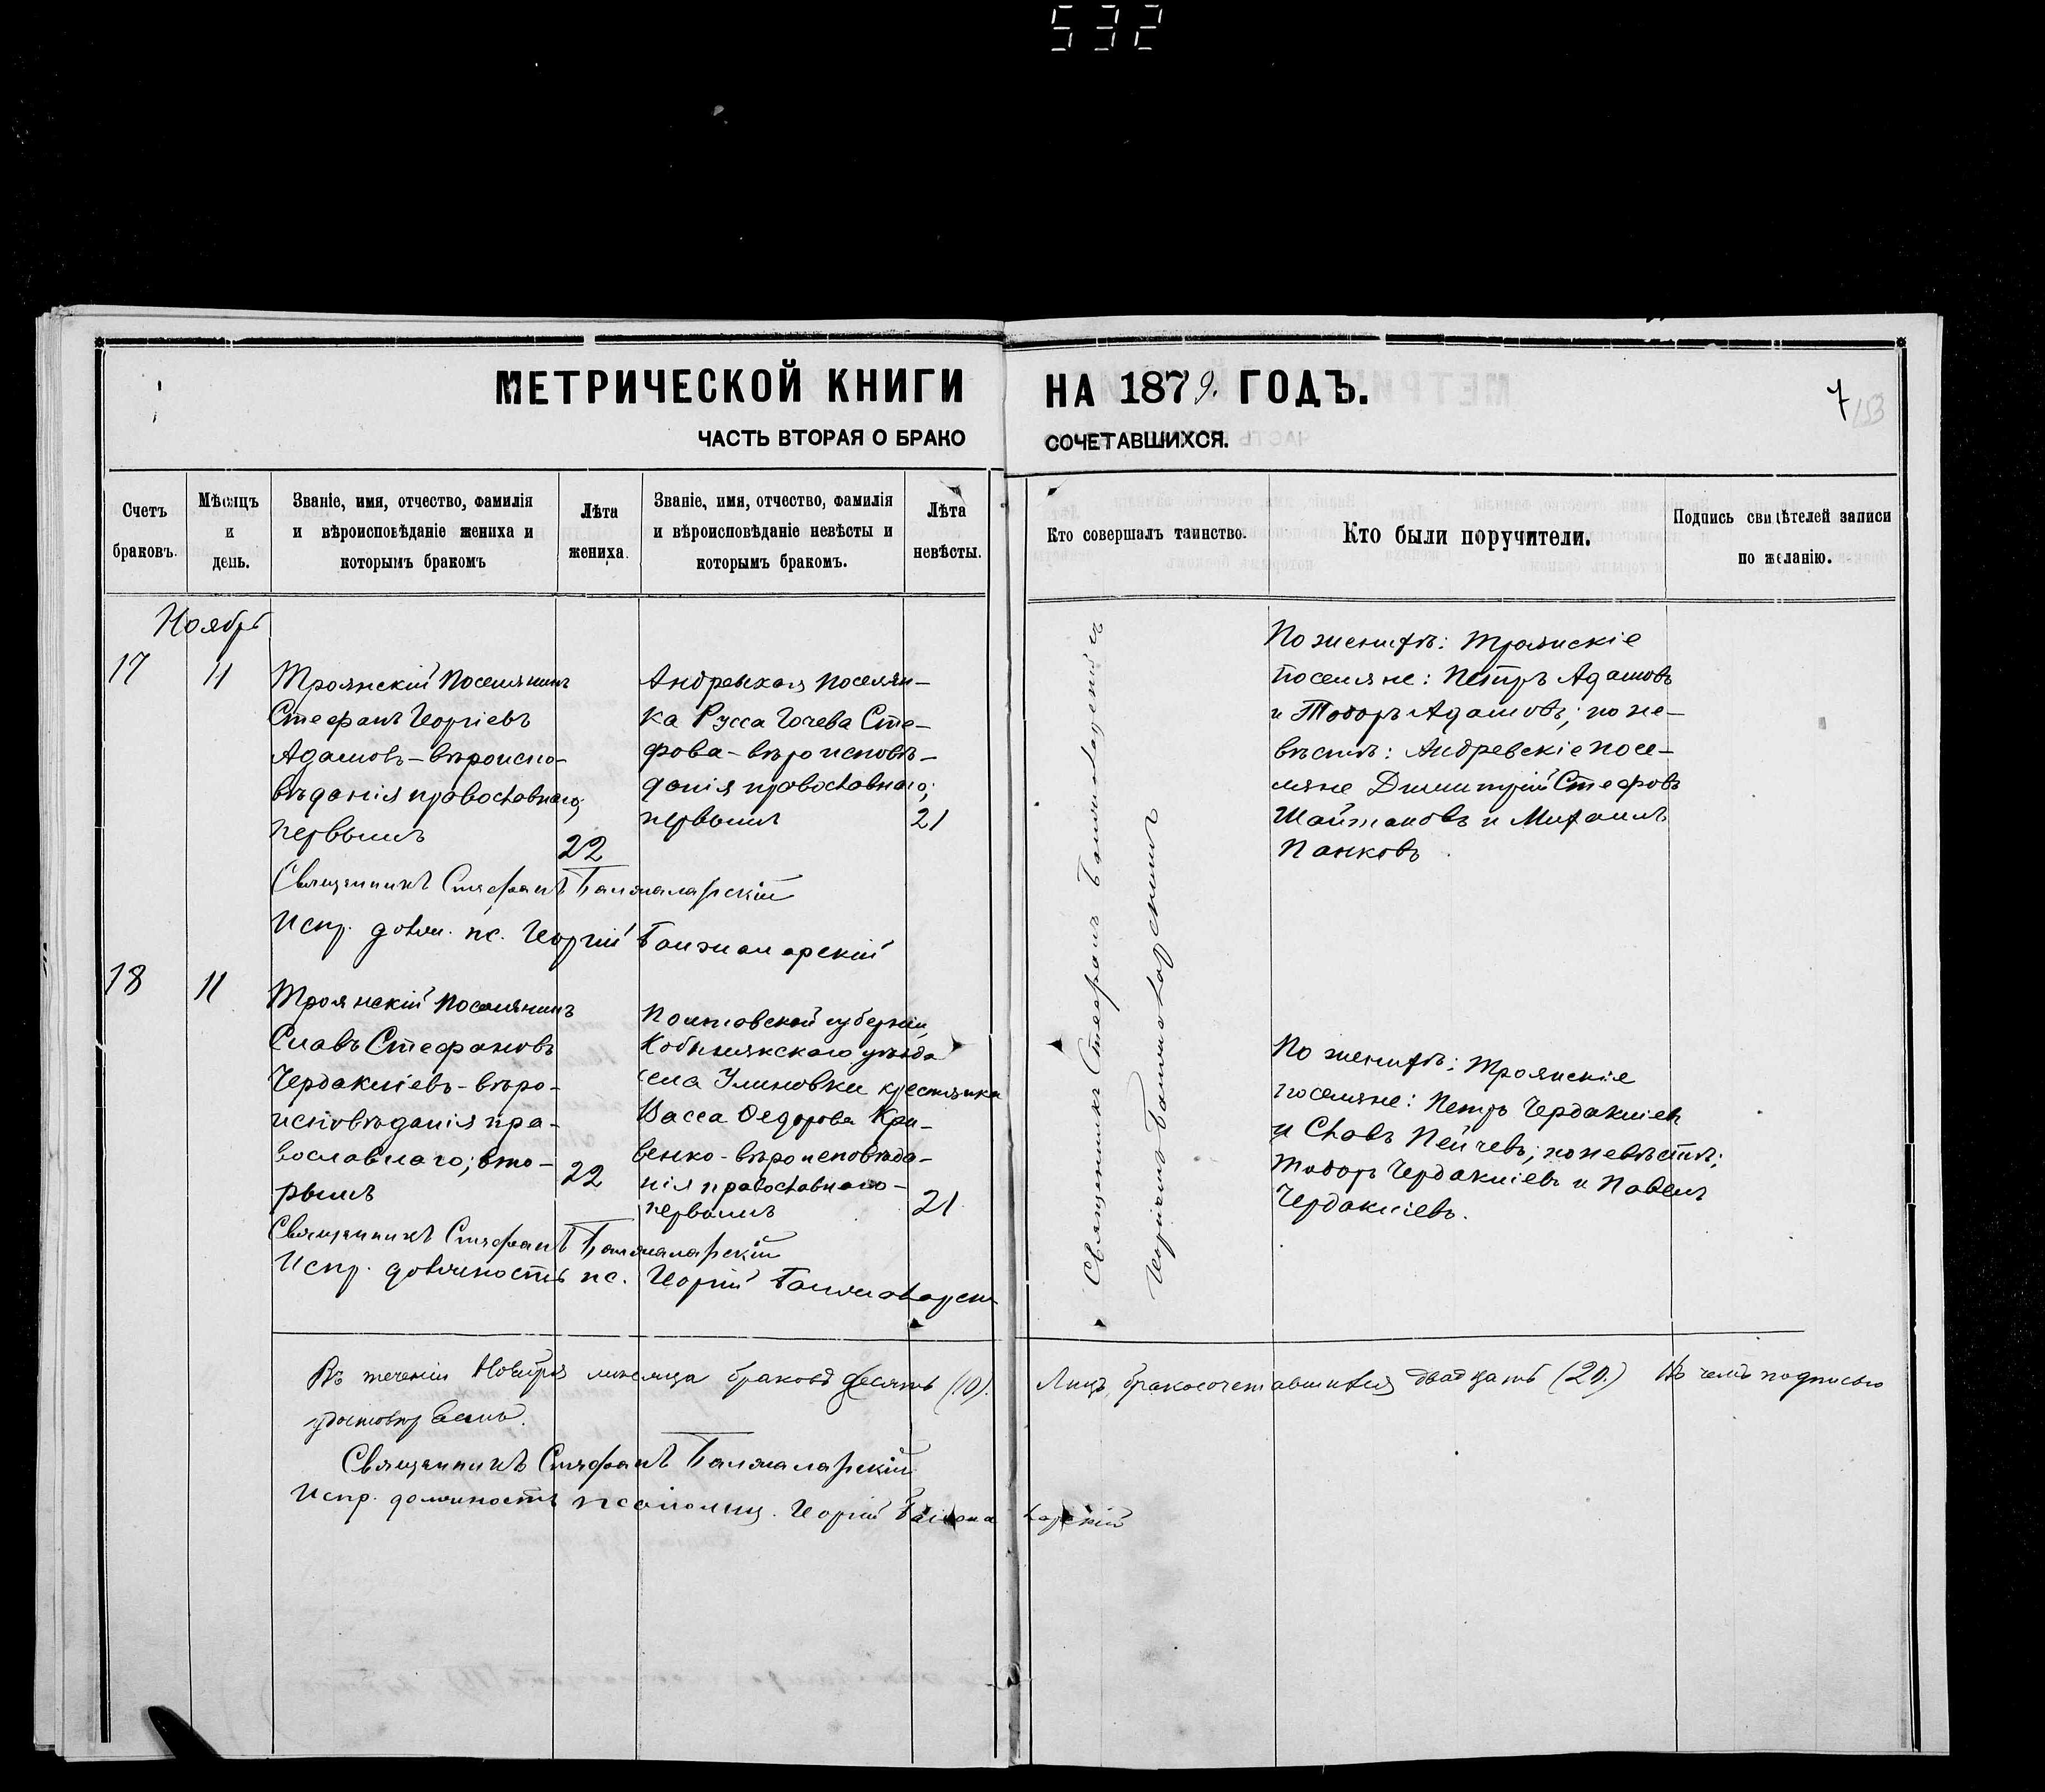 532
МЕТРИЧЕСКОЙ КНИГИ
ЧАСТЬ ВТОРАЯ О БРАКО
Счетъ браковъ.
Мѣсяцъ и день.
Званіе, имя, отчество, фамилія
и вѣроисповѣданіе жениха и
которымъ бракомъ
Лѣта жениха.
Званіе, имя, отчество, фамилія
и вѣроисповѣданіе невѣсты и
которымъ бракомъ.
Лѣта невѣсты.
Ноябрь
17
11
Троянскій поселянинъ
Стефанъ Георгіевъ
Адамовъ - вѣроиспо-
вѣданія православнаго;
первымъ
22
Андревская поселян-
ка Русса Гочева Сте-
фова - вѣроисповѣ-
данія православнаго;
первымъ
21
Священникъ Стефанъ
Испр. долж. пс. Георгій
18
11
Троянскій поселянинъ
Славъ Стефановъ
Чердакліевъ - вѣро-
исповѣданія пра-
вославнаго; вто-
рымъ
22
Полтовской губерніи,
Кобылякскаго уѣзда
села Улиновки крестьянка
Васса Федорова Кри-
венко - вѣроисповѣда-
нія православнаго -
первымъ
21
Священникъ Стефанъ
Испр. должность пс. Георгій
Въ теченіи Ноября мѣсяца браковъ десять (10).
удостовѣряемъ.
Священникъ Стефанъ
Испр. должность псаломщ. Георгій
НА 1879. ГОДЪ.
7
153
СОЧЕТАВШИХСЯ.
Кто совершалъ таинство.
Кто были поручители.
Подпись свидѣтелей записи
по желанію.
Священникъ Стефанъ
По женихѣ: Троянскіе
поселяне: Петръ Адамовъ
и Тодоръ Адамовъ; по не-
вѣстѣ: Андревскіе посе-
ляне Димитрій Стефовъ
Шайтановъ и Михаилъ
Панковъ.
По женихѣ: Троянскіе
поселяне: Петръ Чердакліевъ
и Славъ Пейчевъ; по невѣстѣ:
Тодоръ Чердакліевъ и Павелъ
Чердакліевъ.
Лицъ бракосочетавшихся двадцать (20.) Въ чемъ подписью